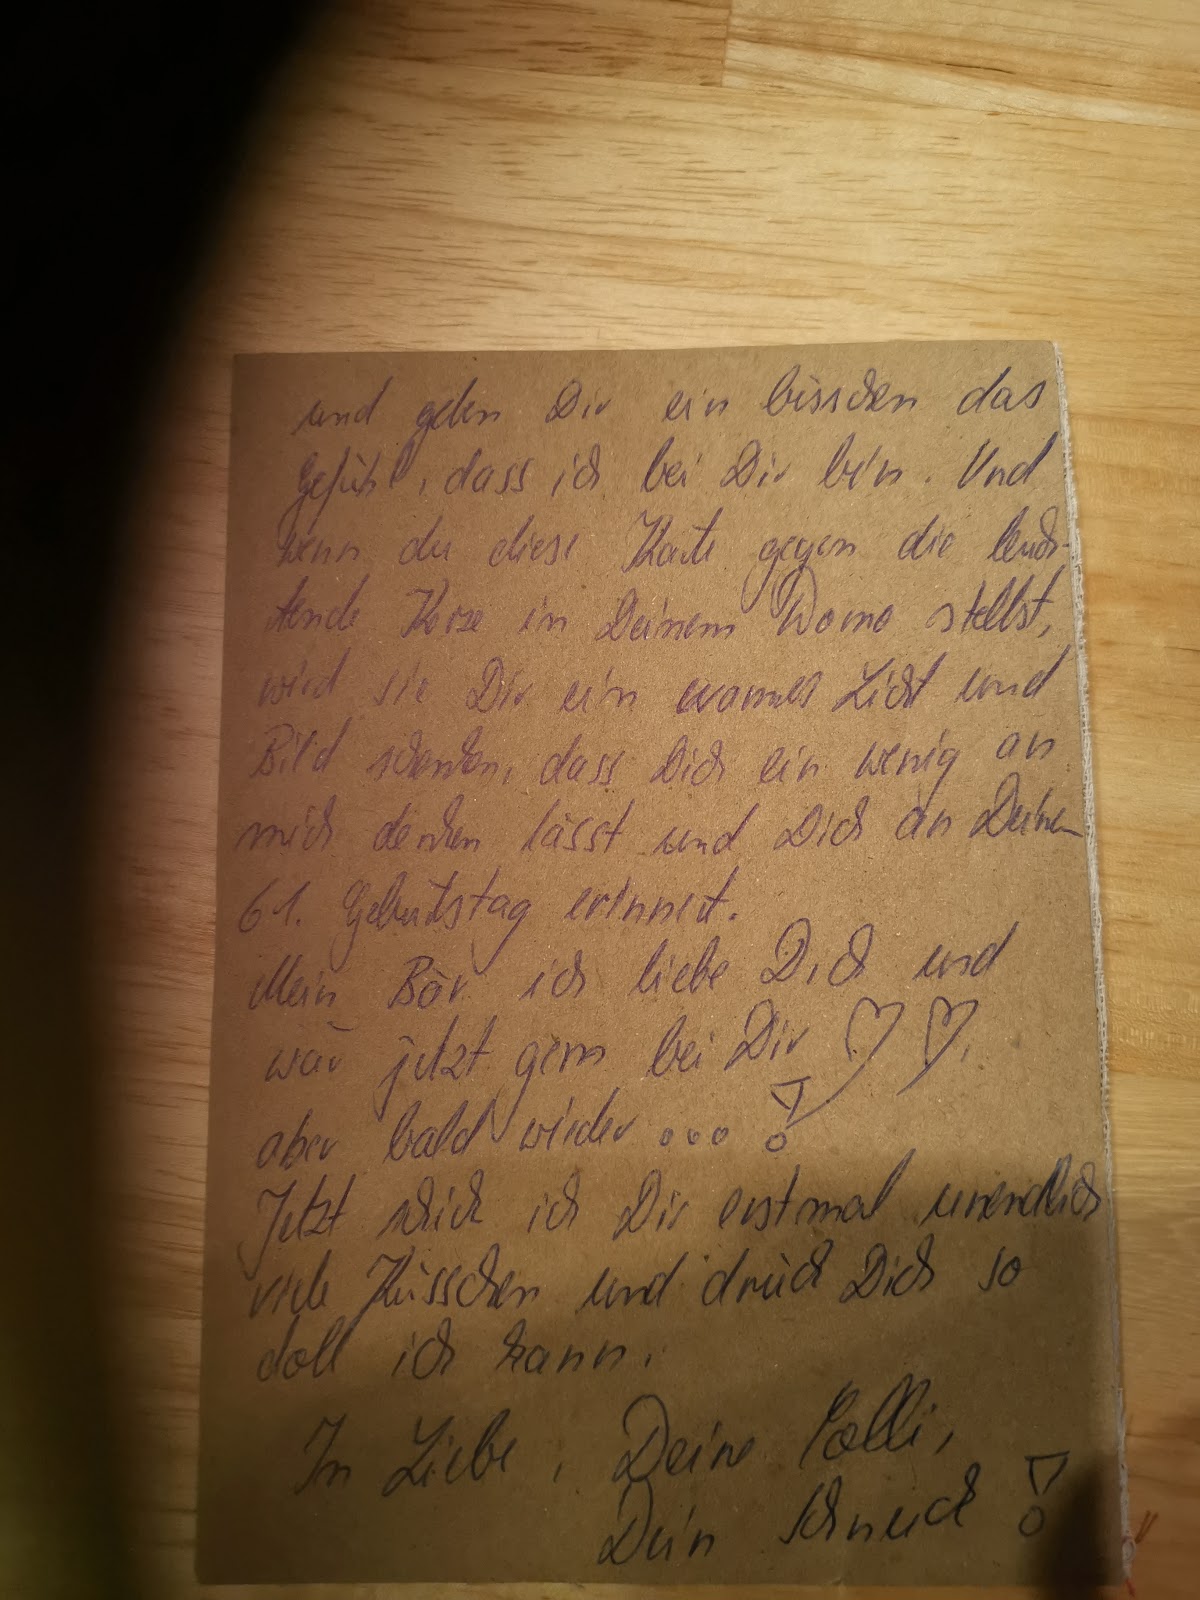 und geben Dir ein bisschen das
Gefühl, dass ich bei Dir bin. Und
wenn du diese Karte gegen die leuch-
tende Kerze in Deinem Womo stellst,
wird sie Dir ein warmes Licht und
Bild schenken, dass Dich ein wenig an
mich denken lässt und Dich an Deinen
61. Geburtstag erinnert.
Mein Bär ich liebe Dich und
wär jetzt gern bei Dir ♡ ♡,
aber bald wieder ... !
Jetzt schick ich Dir erstmal unendlich
viele Küsschen und drück Dich so
doll ich kann.
In Liebe, Deine
Dein !